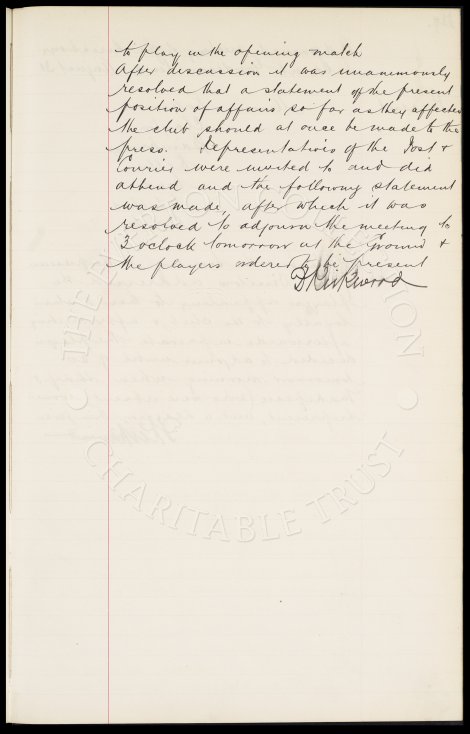 to play in the opening match
After discussion it was unanimously
resolved that a statement of the present
position of affairs so far as they affected
the club should at once be made to the
press. Representatives of the Post &
Courier were invited to and did
attend and the following statement
was made, after which it was
resolved to adjourn the meeting to
3 oclock tomorrow at the Ground &
the players ordered to be present
D Kirkwood
CHARITABLE TRUST